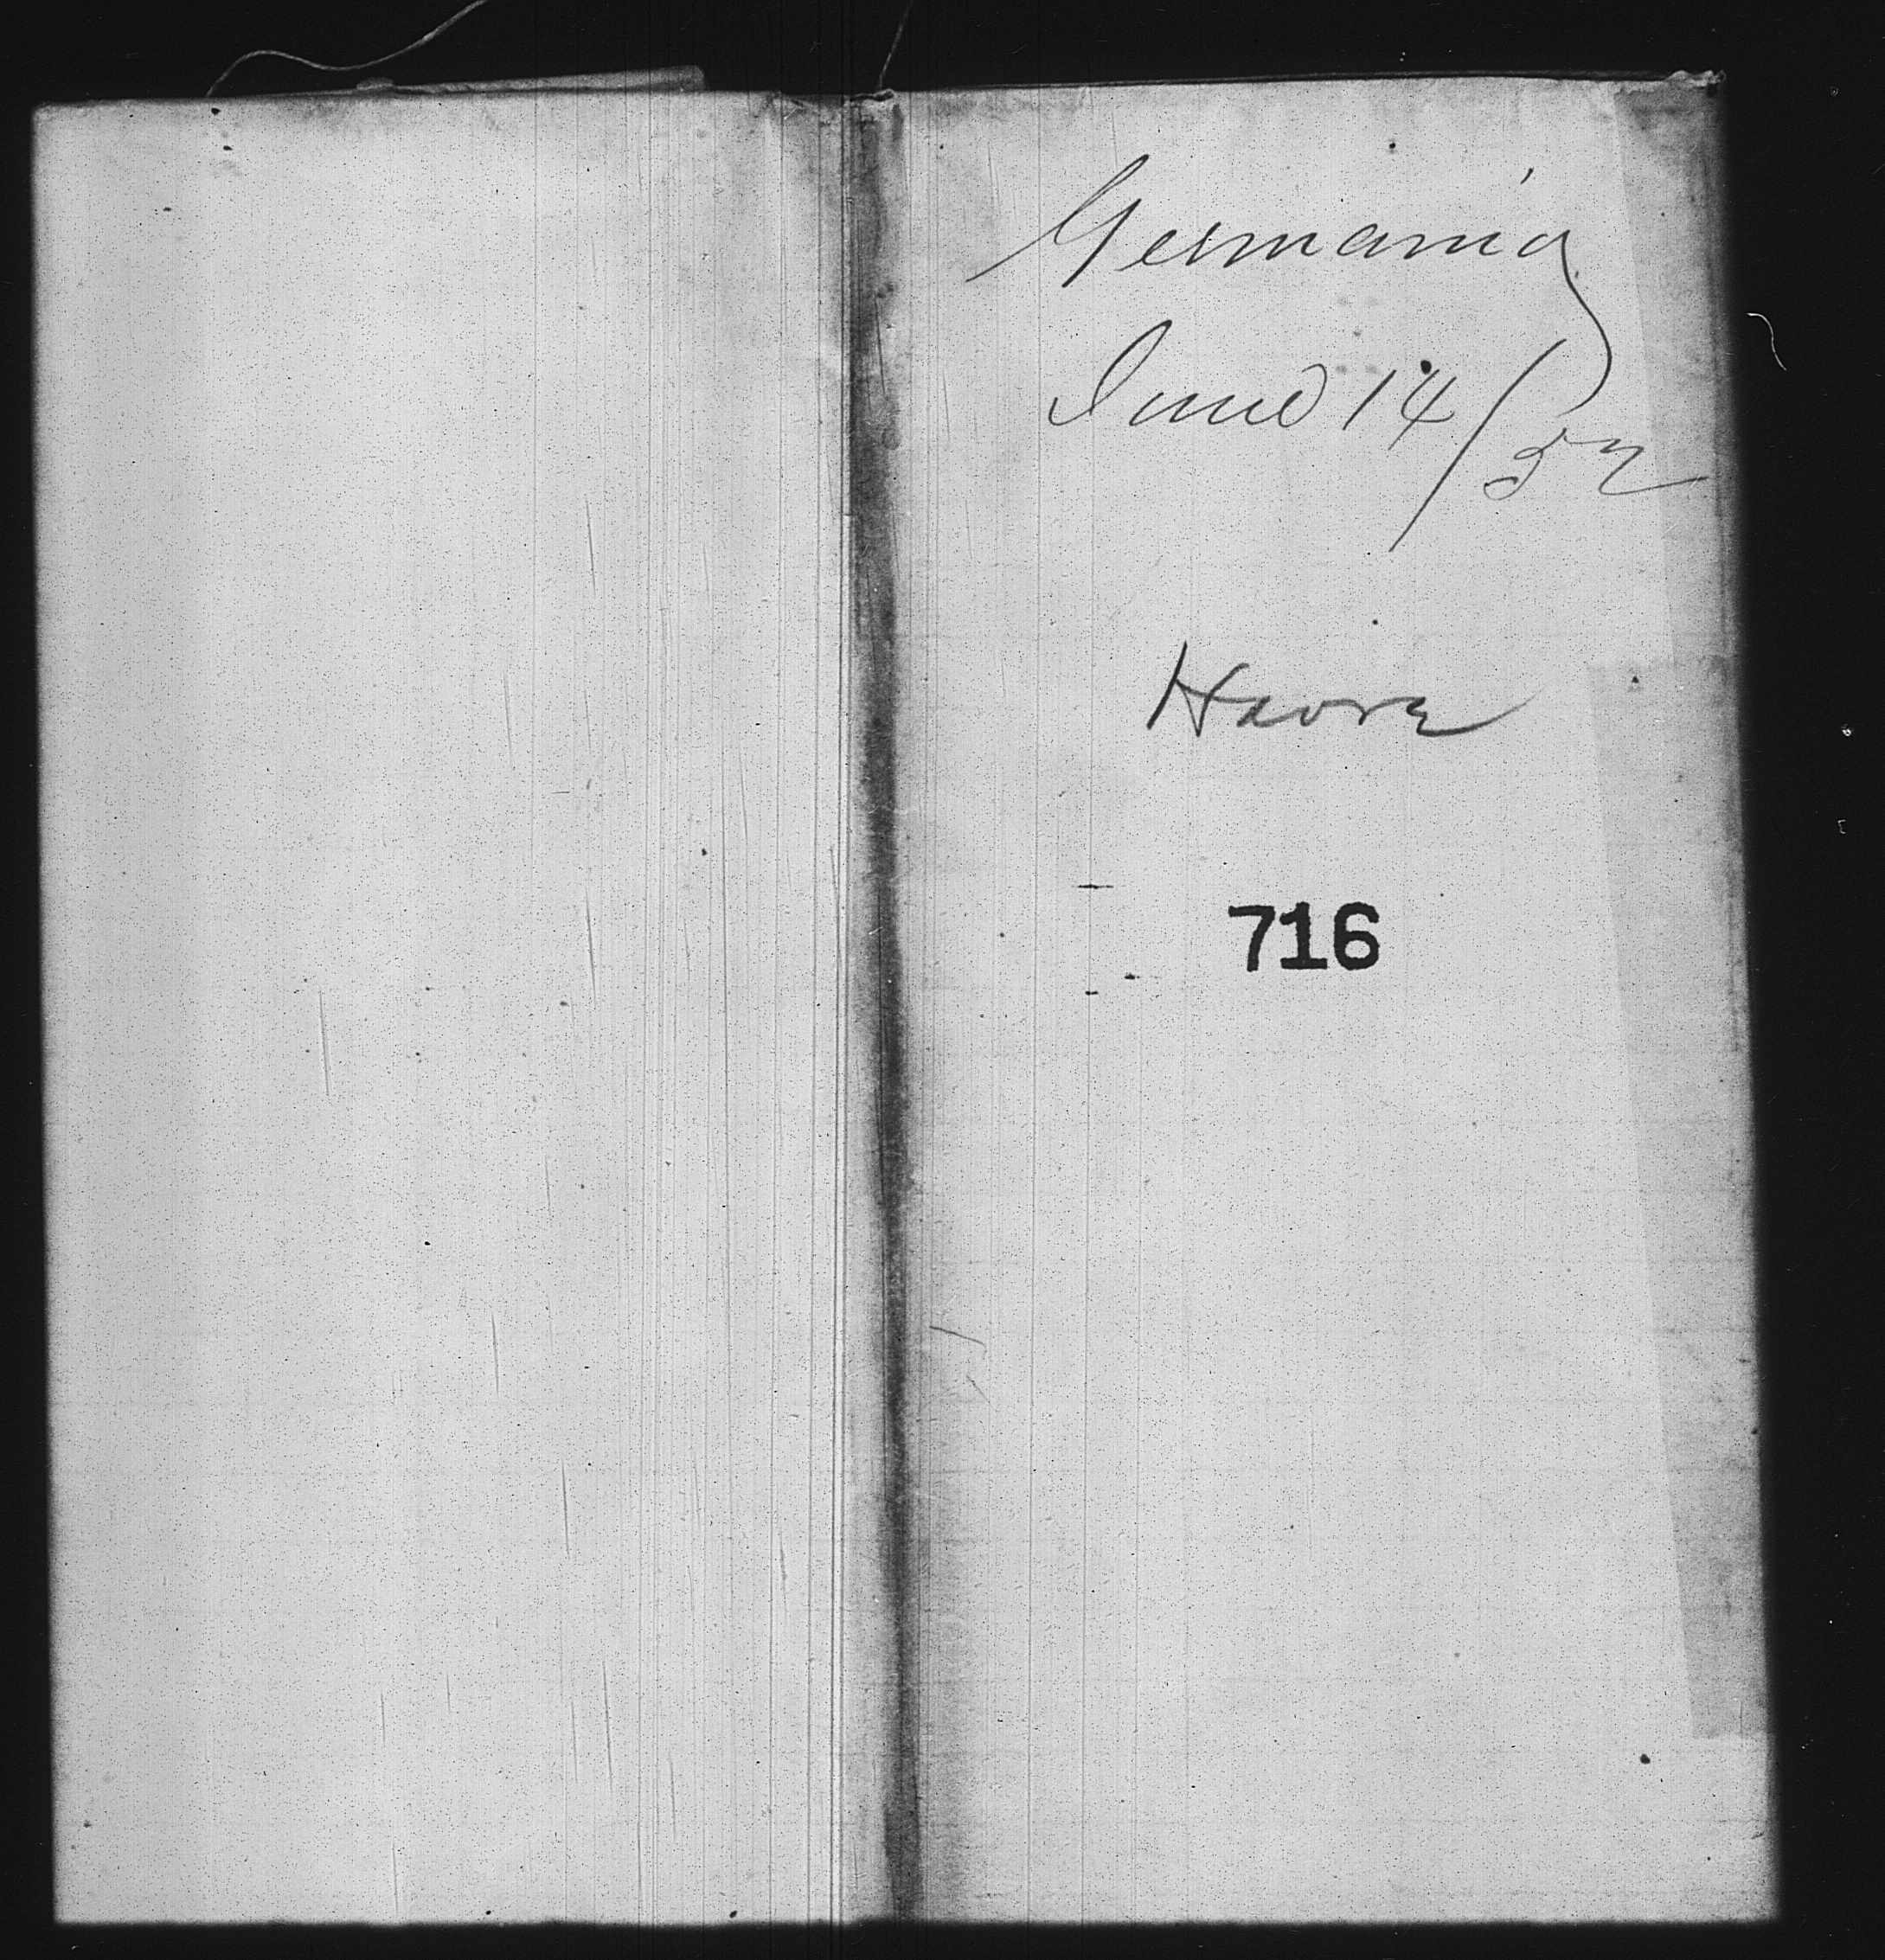 Germania
June 14/52
Havre
716